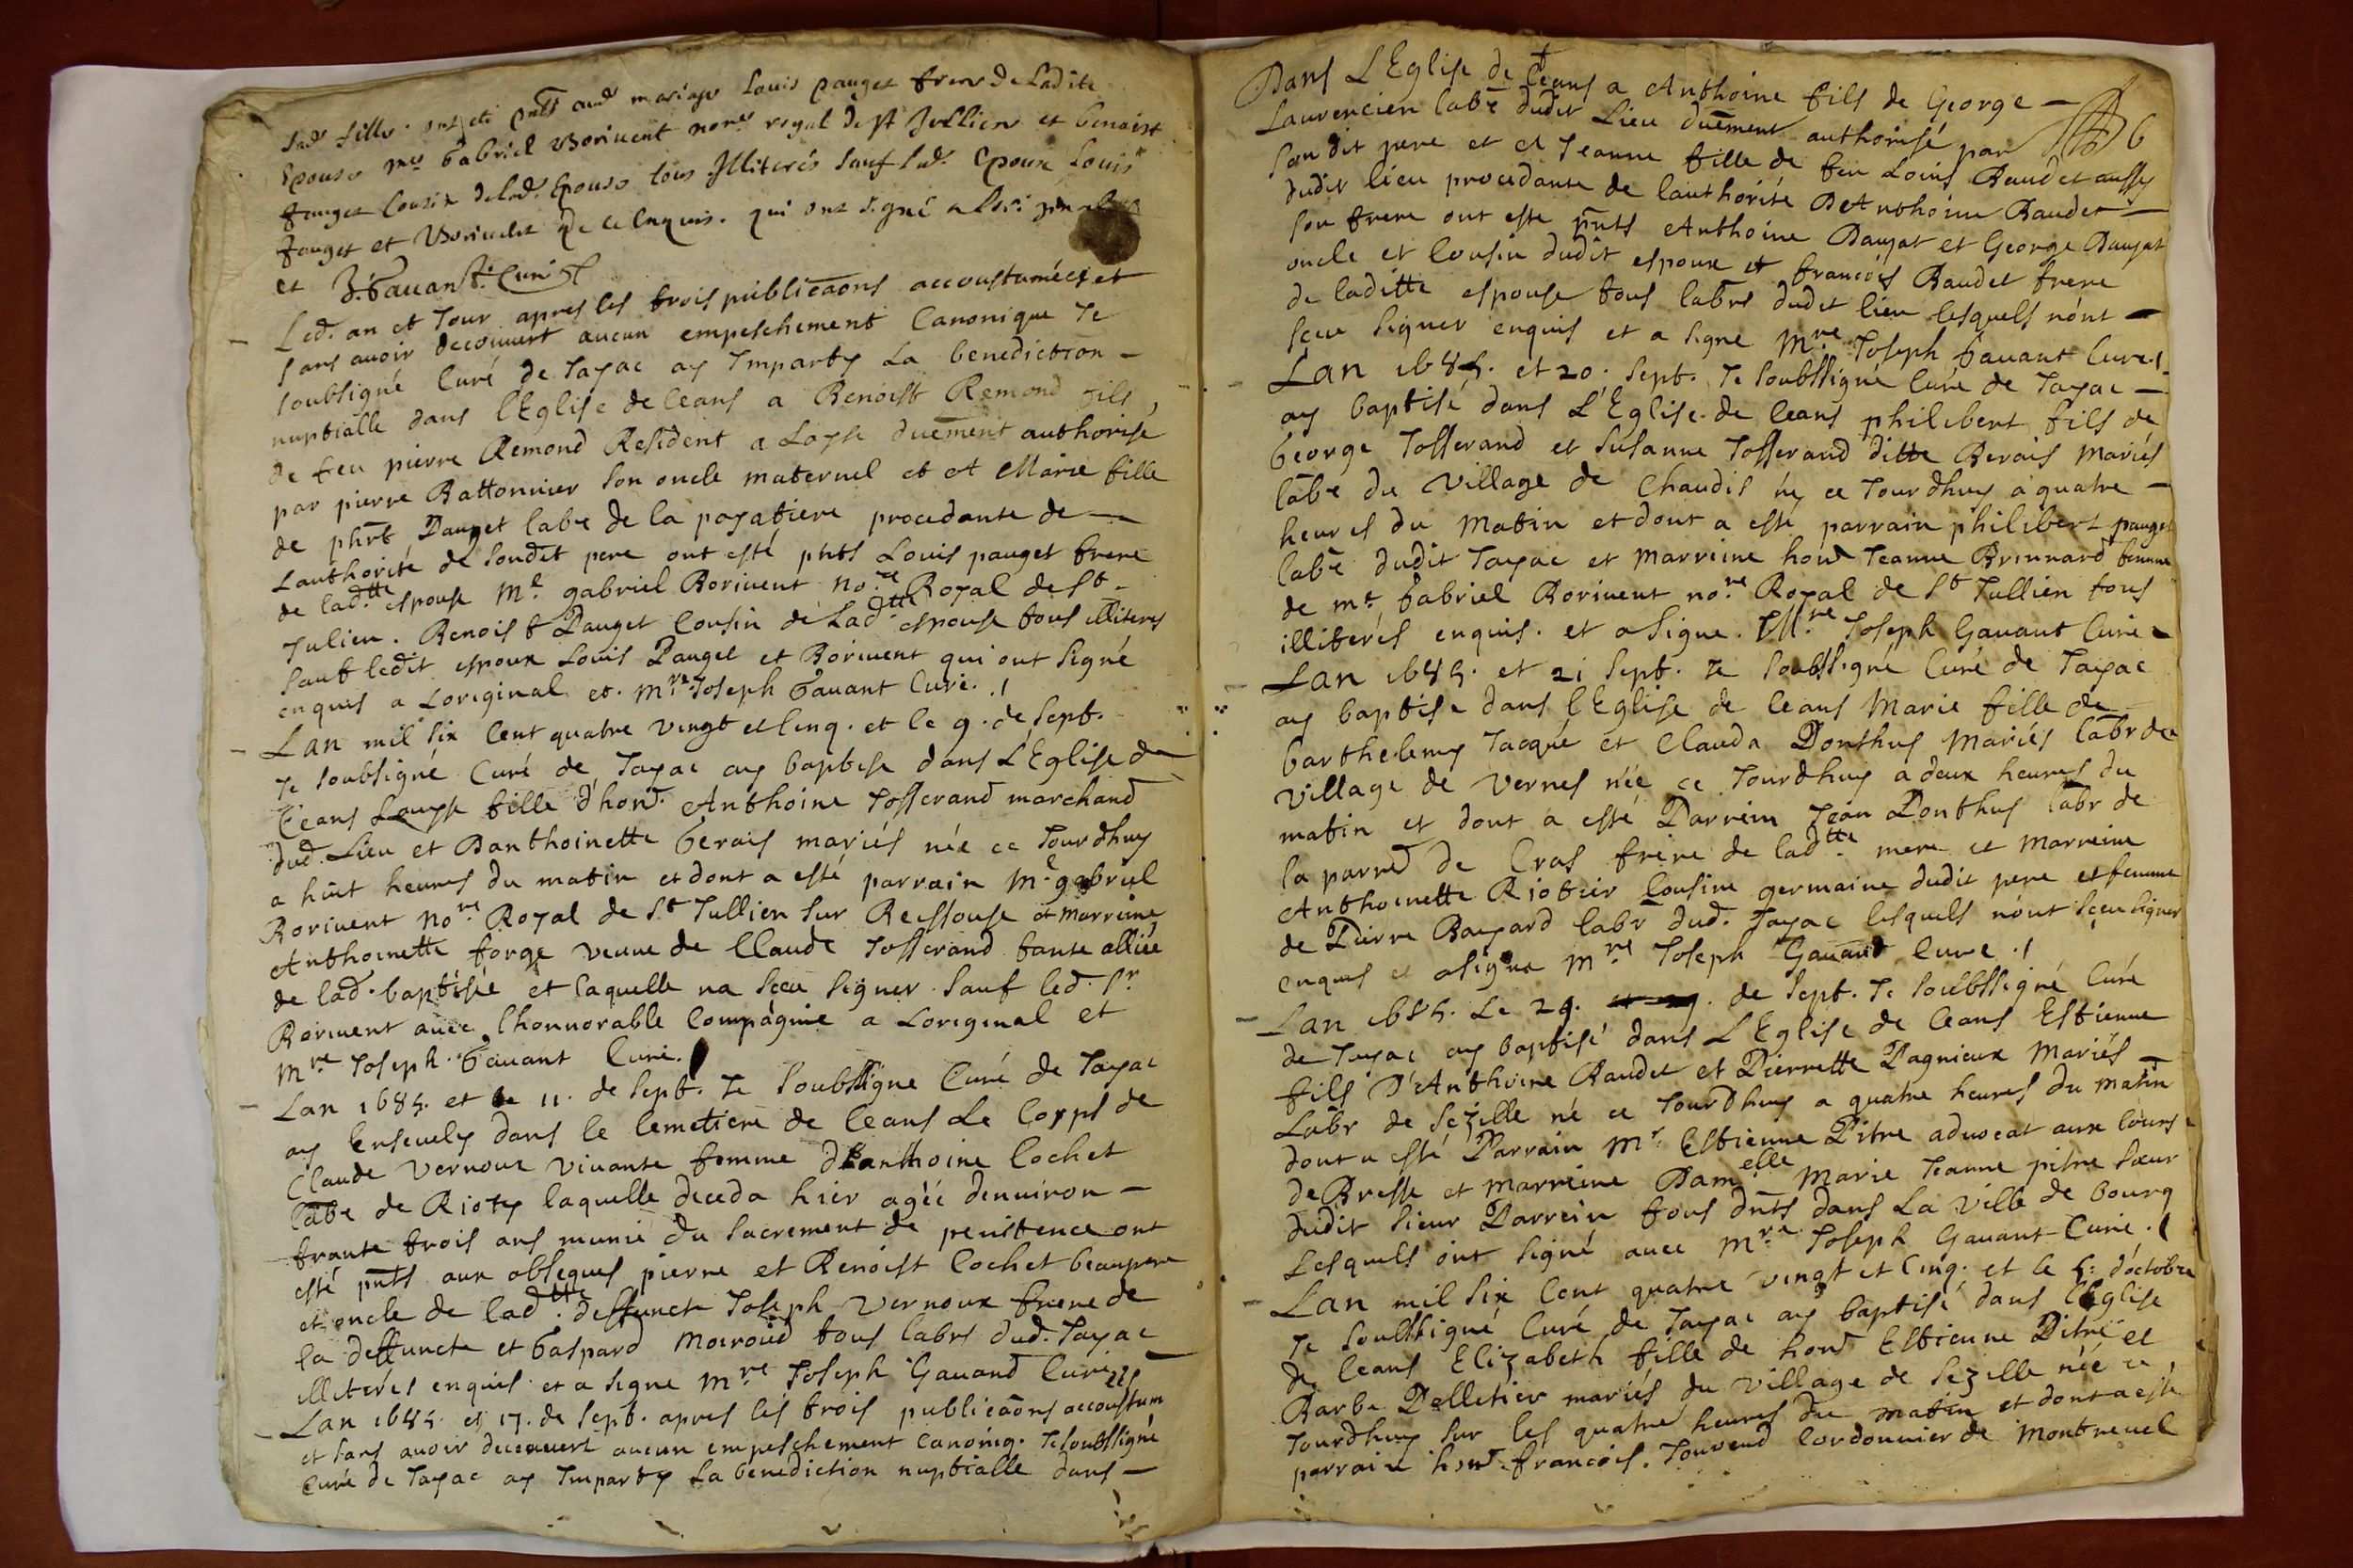 lad. fille. ont esté pnts aud. mariage Louis pauget frere de Ladite
Epouse me Gabriel Borivent nore royal de st Jullien et benoist
Pauget Cousin de lad. Epouse tous Illiterés sauf lad. Epoux Louis
Pauget et Borivent de ce enquis. qui ont signé
et J. Gavant. Curé
Led. an et Jour apres les trois publicaons accoustumées et
sans avoir decouvert aucun empeschement Canonique Je
soubsigné Curé de Jayac ay Imparty La benediction –
nuptialle dans l'Eglise de ceans a Benoist Remond fils
de feu pierre Remond Resident a Loyse duement authorisé
par pierre Battonnier son oncle maternel et A Marie fille
de phrt Pauget labr de la payatiere procedante de –
Lauthorité de sondit pere ont esté pnts Louis pauget frere
de ladtte espouse Me gabriel Borivent nore Royal de St –
Julien. Benoist Pauget Cousin de Ladtte espouse tous illiterés
sauf ledit espoux Louis Pauget et Borivent qui ont signé
enquis a Loriginal et. Mre Joseph Gavant Curé. /
– Lan mil six Cent quatre vingt et Cinq. et le 9. de Sept.
Je soubsigné Curé de Jayac ay baptise dans L'Eglise de
Ceans Louyse fille d'hond. Anthoine Josserand marchand
dud. Lieu et Danthoinette Gerais mariés née ce Jourdhuy
a huit heures du matin et dont a esté parrain Me gabriel
Borivent nore Royal de St Jullien sur Reissouse et Marreine
Anthoinette forge veuve de Claude Josserand tante alliée
de lad. baptisée et laquelle na sceu signer. Sauf led. Sr
Borivent avec l'honnorable Compagnie a Loriginal et
Mre Joseph. Gavant Curé.
– Lan 1685. et le 11. de Sept. Je soubssigne Curé de Jayac
ay Ensevely dans le Cemetiere de Ceans Le Corps de
Claude Vernoux vivante femme d'anthoine Cochet
labr de Rioty laquelle deceda hier agée denviron –
trante trois ans munie du Sacrement de penitence ont
esté pnts aux obseques pierre et Benoist Cochet beaupere
et oncle de ladtte. deffuncte Joseph Vernoux frere de
la deffuncte et Gaspard Moiroud tous labrs dud. Jayac
illiterés enquis et a signe Mre Joseph Gavand Curé
– Lan 1685. et 17. de Sept. apres les trois publicaons accoustumées
et sans avoir decouvert aucun empeschement canoniq. Je soubssigné
Curé de Jayac ay Imparty La benediction nuptialle dans –
Dans L'Eglise de Ceans a Anthoine fils de George –
Laurencien labr dudit Lieu duëment authorisé par
son dit pere et A Jeanne fille de feu Louis Baudet aussy
dudit lieu procedante de lauthorité D'Anthoine Baudet –
son frere ont esté pnts Anthoine Daujat et George Daujat
oncle et cousin dudit espoux et francois Baudet frere
de laditte espouse tous labrs dudit lieu lesquels nont –
sceu signer enquis et a signe Mre Joseph Gavant Curé. /
– Lan 1685. et 20. Sept. Je soubssigné Curé de Jayac –
ay baptisé dans L'Eglise de Ceans philibert fils de
George Josserand et Susanne Josserand ditte Berais Mariés
labr du village de Chaudis né ce Jourdhuy a quatre –
heures du Matin et dont a esté parrain philibert pauget
labr dudit Jayac et Marreine hond Jeanne Brunnard femme
de me Gabriel Borivent nore Royal de St Jullien tous
illiterés enquis. et a signe. Mre Joseph Gavant Curé –
– Lan 1685. et 21 Sept. Je soubssigné Curé de Jayac
ay baptise dans l'Eglise de Ceans Marie fille de
Barthelemy Jacque et Clauda Donthus Mariés labr du
village de Vernes née ce Jourdhuy a deux heures du
matin et dont a esté Parrein Jean Donthus labr de
la parred de Cras frere de ladtte mere et Marreine
Anthoinette Riotier Cousine germaine dudit pere et femme
de Pierre Bayard labr dud. Jayac lesquels n'ont sceu signer
enquis et a signe Mre Joseph Gavand Curé. /
– Lan 1685. Le 29. de Sept. Je soubssigné Curé
de Jayac ay baptisé dans L'Eglise de Ceans Estienne
fils D'Anthoine Baudet et Pierrette Pagnieux Mariés –
Labr de Sezille né ce Jourdhuy a quatre heures du matin
dont a esté Parrain Mr. Estienne Pitre advocat aux cours
de Bresse et marreine Damelle Marie Jeanne pitre soeur
dudit sieur Parrein tous dnts dans La ville de bourg
Lesquels ont signé avec Mre Joseph Gavant Curé. /
– Lan mil six Cent quatre vingt et Cinq. et le 5. d'octobre
Je soubssigné Curé de Jayac ay baptisé dans L'Eglise
de Ceans Elizabeth fille de hond Estienne Pitre et
Barbe Pelletier mariés du village de Sezille née ce
Jourdhuy sur les quatre heures du matin et dont a esté
parrain hond. francois. Jouvend Cordonnier de Montrevel